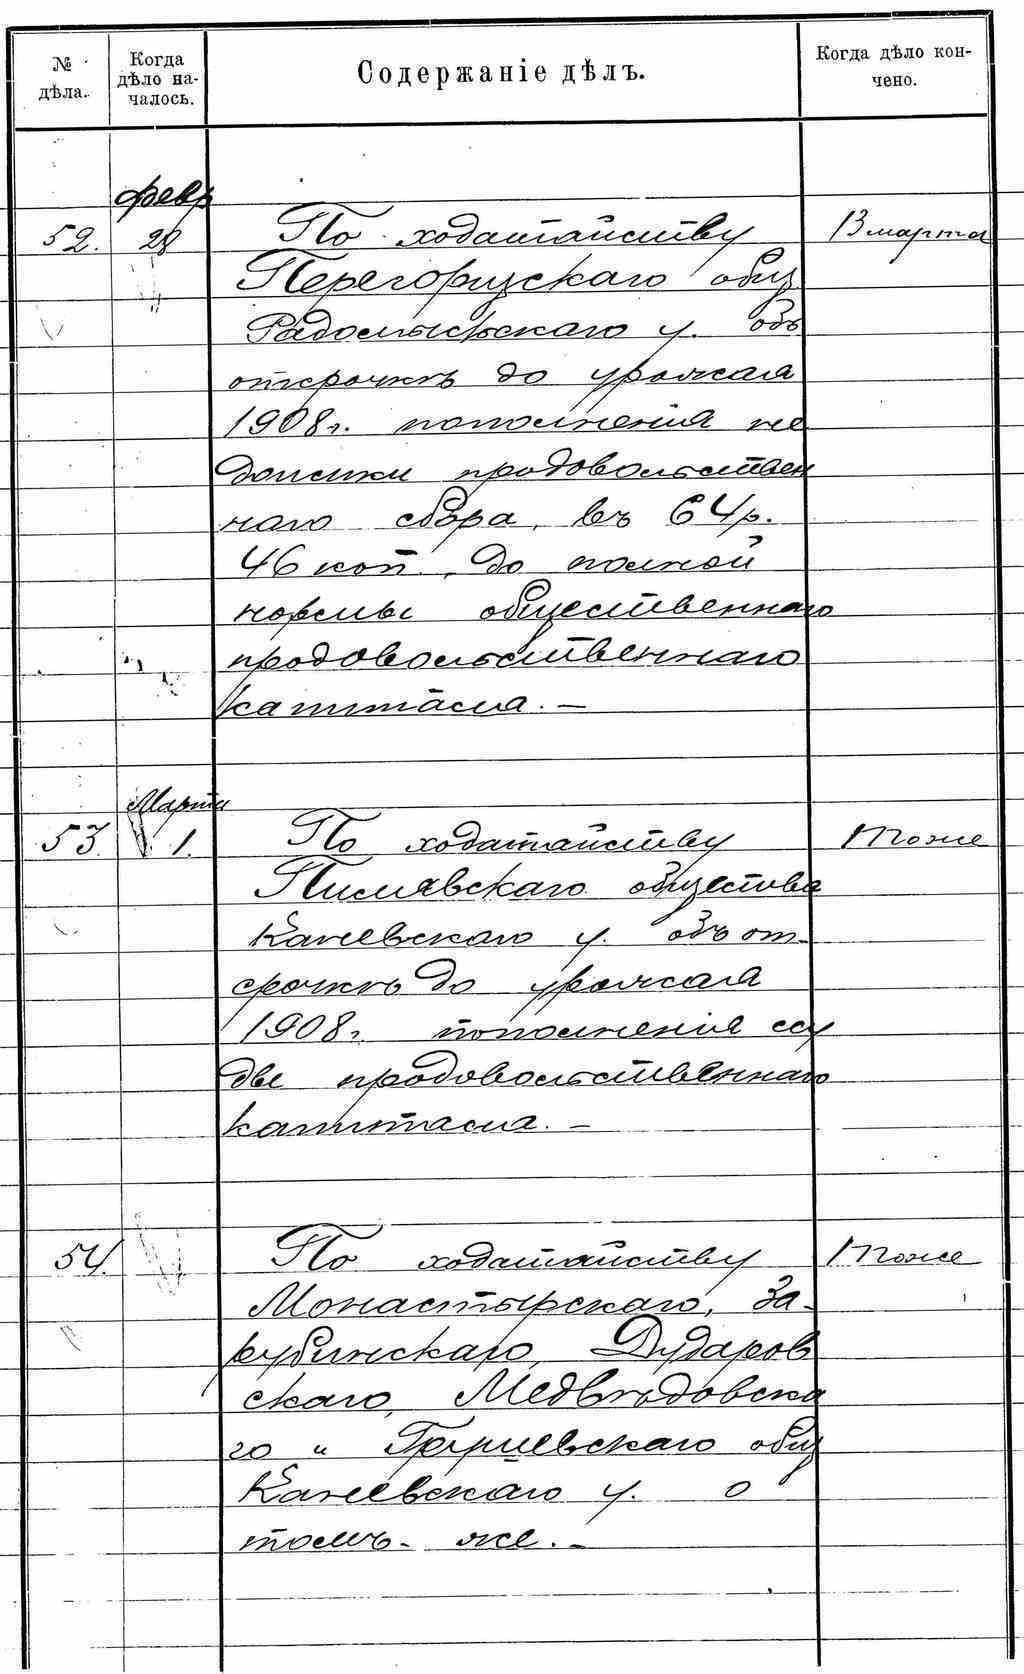 № дѣла.
Когда дѣло на-
чалось.
Содержаніе дѣлъ.
Когда дѣло кон-
чено.
февр
52. 28 По ходатайству 13 марта
общ.
Радомысльскаго у. объ
отсрочкѣ до урожая
1908 г. пополненія не
доимки продовольствен
наго сбора, въ 64 р.
46 коп., до полной
нормы общественнаго
продовольственнаго
капитала. —
Марта
53. 1. По ходатайству Тоже
общества
Каневскаго у. объ от-
срочкѣ до урожая
1908 г. пополненія ссу
ды продовольственнаго
капитала. —
54. По ходатайству Тоже
Монастырскаго, За-
рубинскаго, Дударов
скаго, Медвѣдовска
го и общ
Каневскаго у. о
томъ-же. —